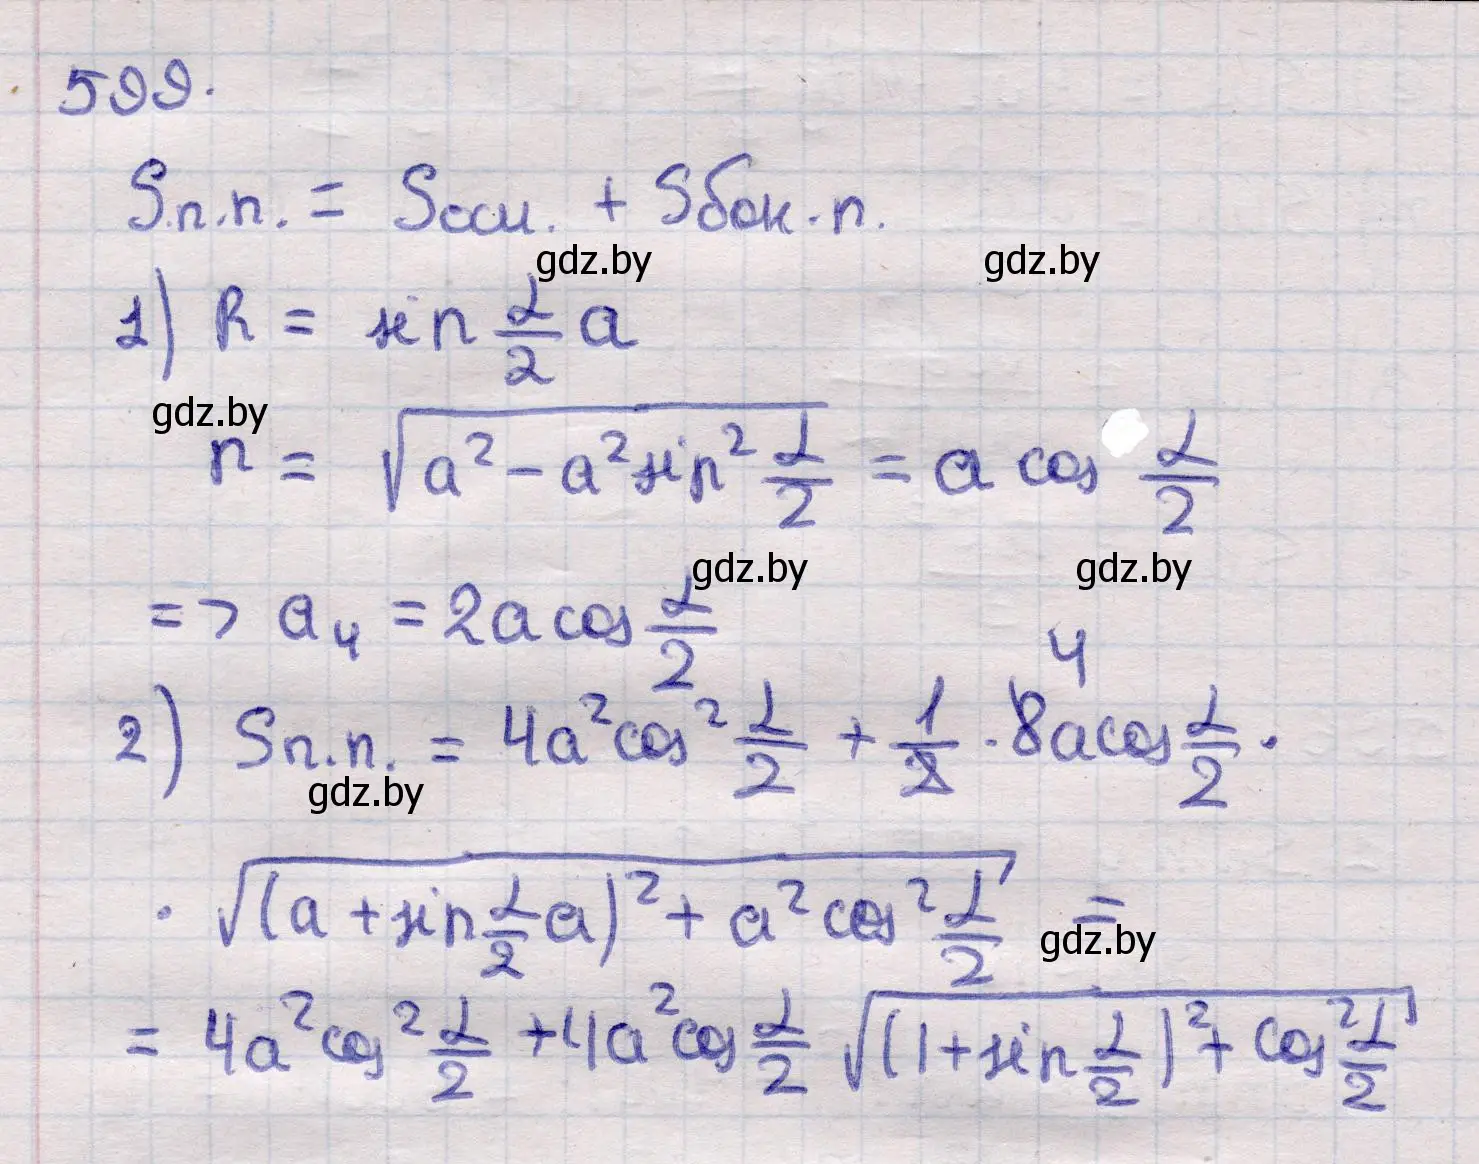 599.
Sп.п. = Sосн. + Sбок.п.
gdz.by gdz.by
1) R = sin α/2 a
gdz.by
п = √(a² - a² sin² α/2) = a cos α/2
gdz.by gdz.by
=> a₄ = 2a cos α/2
2) Sп.п. = 4a² cos² α/2 + 1/2 · 8a cos α/2 ·
4
gdz.by
· √((a + sin α/2 a)² + a² cos² α/2) =
gdz.by
= 4a² cos² α/2 + 4a² cos α/2 √((1 + sin α/2)² + cos² α/2)